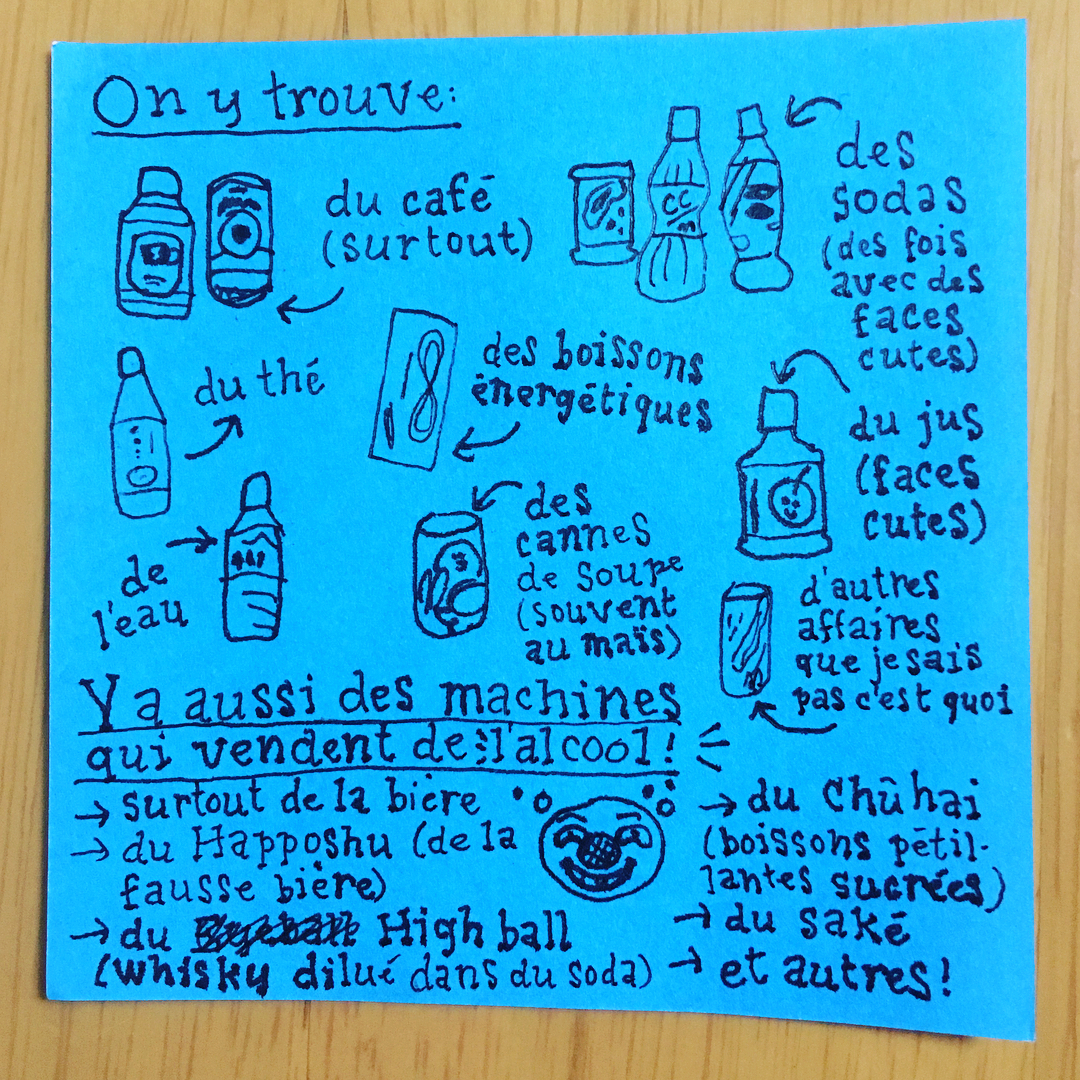 On y trouve:
du café
(surtout)
des
sodas
(des fois
avec des
faces
cutes)
CC
du thé
des boissons
énergétiques
du jus
(faces
cutes)
de
l'eau
des
cannes
de soupe
(souvent
au maïs)
d'autres
affaires
que je sais
pas c'est quoi
Y a aussi des machines
qui vendent de l'alcool!
→ surtout de la bière
→ du Happoshu (de la
fausse bière)
→ du High ball
(whisky dilué dans du soda)
→ du Chūhai
(boissons pétil-
lantes sucrées)
→ du saké
→ et autres!